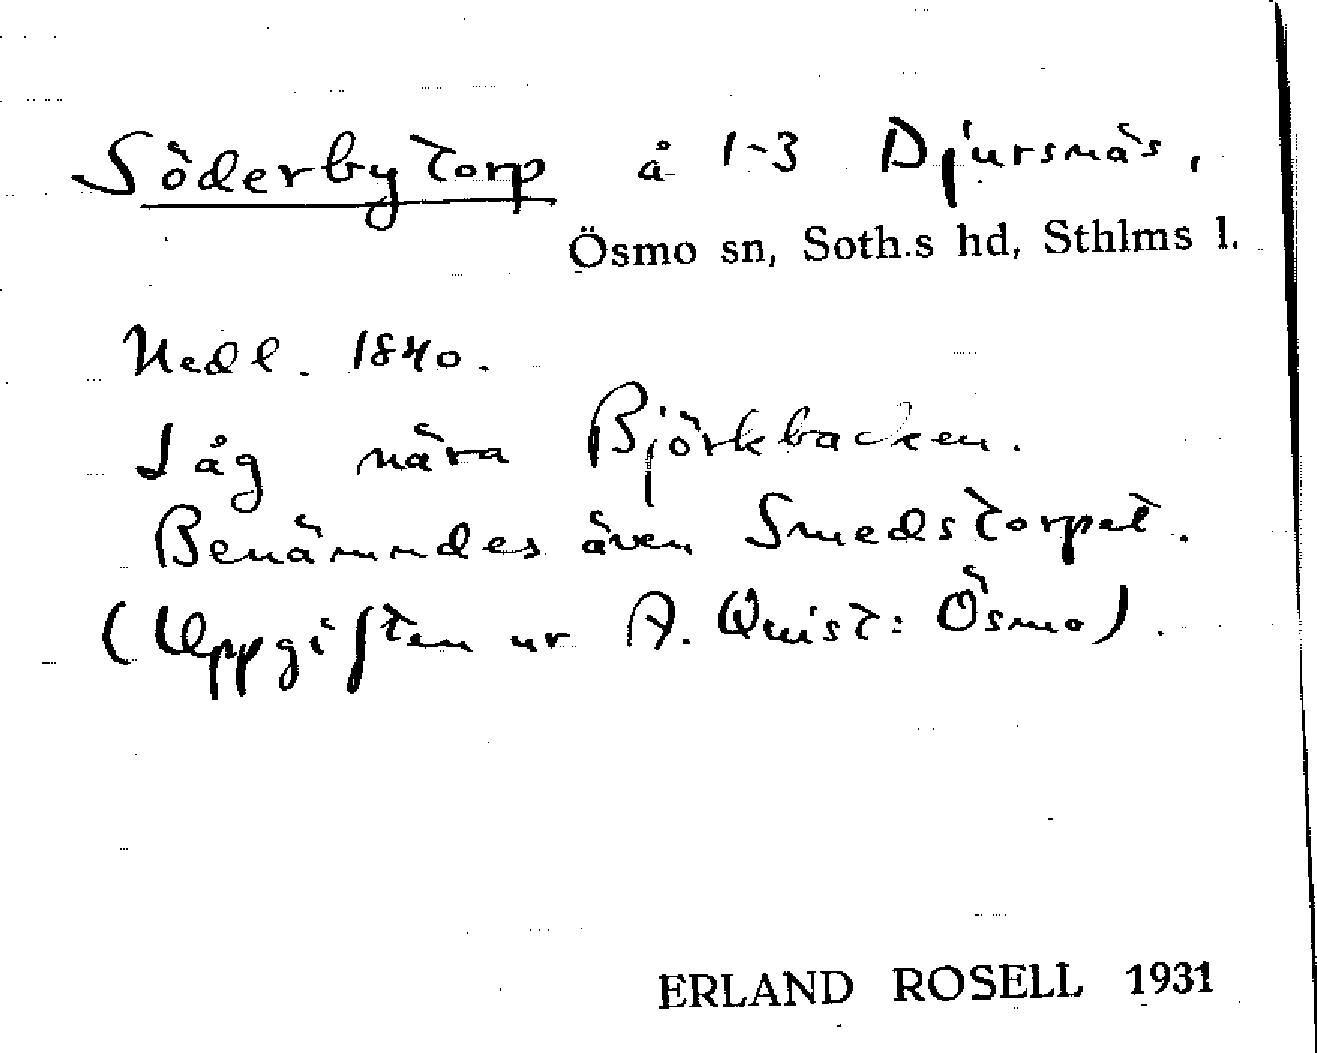 Söderbytorp å 1-3 Djursnäs,
Ösmo sn, Soth.s hd, Sthlms l.
Nedl. 1840.
Låg nära Björkbacken.
Benämndes även Smedstorpet.
(Uppgiften ur A. Quist: Ösmo).
ERLAND ROSELL 1931